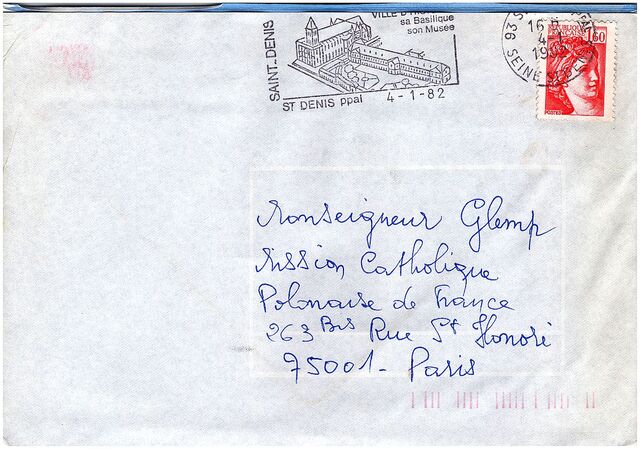 SAINT-DENIS
sa Basilique
son Musée
ST DENIS ppal 4-1-82
16 H
4-1
SEINE ST
1,60
POSTES
Monseigneur Glemp
Mission Catholique
Polonaise de France
263 Bis Rue St Honoré
75001 - Paris